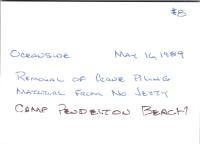 #8
OCEANSIDE MAY 16, 1989
REMOVAL OF CRANE PILING
MATERIAL FROM NO JETTY
CAMP PENDELTON BEACH